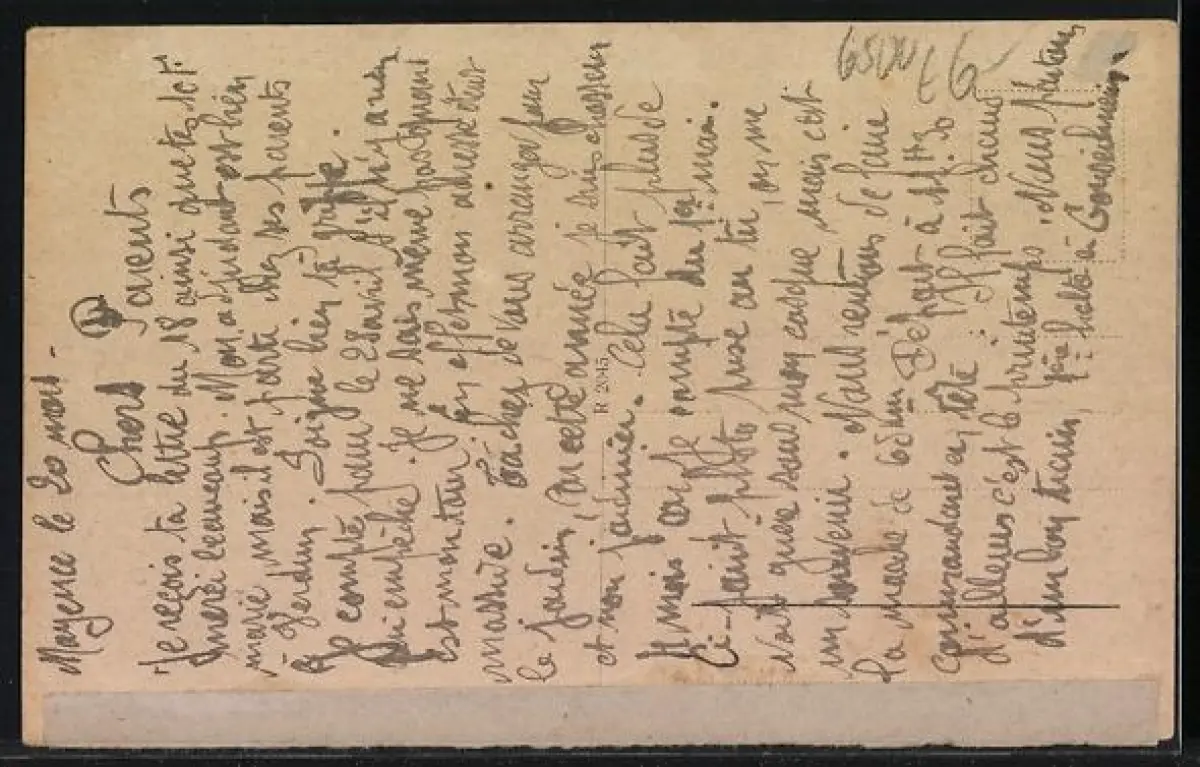 Mayence le 20 mars -
Chers Parents
Je reçois ta lettre du 18 ainsi que tes 10f.
merci beaucoup. Mon adjudant est bien
marié mais il est parti chez ses parents
à Verdun. Soigne bien ta grippe.
Je compte pour le 28 avril s'il n'y a rien
qui empêche. Je ne sais même pas si
est mon tour en effet mon adresse
. Tâchez de vous arranger pour
le jardin, car cette année je suis chasseur
et non jardinier. Cela fait plus de
11 mois car je compte du 1er mai.
Ci-joint photo prise au tir, on me
voit guère sous mon casque mais c'est
un souvenir. Nous rentrons de faire
la marche de 65 km. Départ à 11H30
commandant en tête. Il fait chaud
d'ailleurs c'est le printemps. Nous partons
d'un bon train, 1ère halte à
R 2045
6500